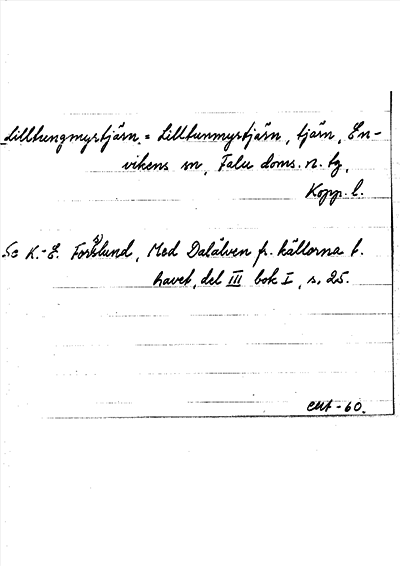 Lilltungmyrtjärn. = Lilltunmyrtjärn, tjärn, En-
vikens sn, Falu doms. n. tg,
Kopp. l.
Se K.-E. Forsslund, Med Dalälven fr. källorna t.
havet, del III bok I, s. 25.
-60.